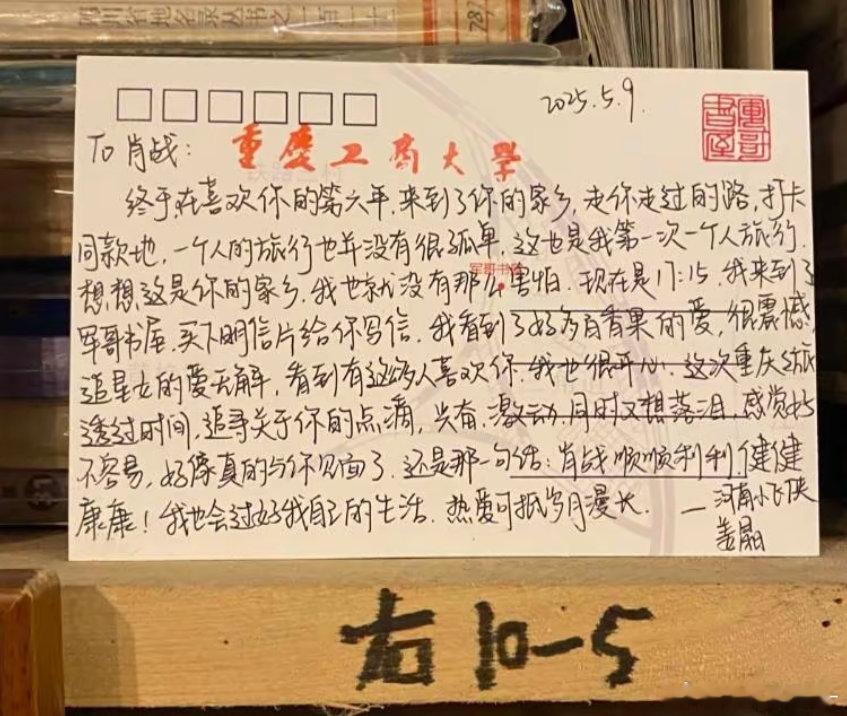 四川省地名录丛书之一百一十
787
2025.5.9.
To 肖战:
重庆工商大学
终于在喜欢你的第六年,来到了你的家乡,走你走过的路,打卡
同款地,一个人的旅行也并没有很孤单,这也是我第一次一个人旅行.
想想这是你的家乡,我也就没有那么害怕.现在是17:15,我来到了
军哥书屋,买下明信片给你写信.我看到了好多百香果的爱,很震撼,
追星女的爱无解,看到有这么多人喜欢你,我也很开心.这次重庆之旅
透过时间,追寻关于你的点滴,兴奋,激动,同时又想落泪,感觉好
不容易,好像真的与你见面了.还是那一句话:肖战顺顺利利,健健
康康!我也会过好我自己的生活.热爱可抵岁月漫长.
—河南小飞侠
右10-5